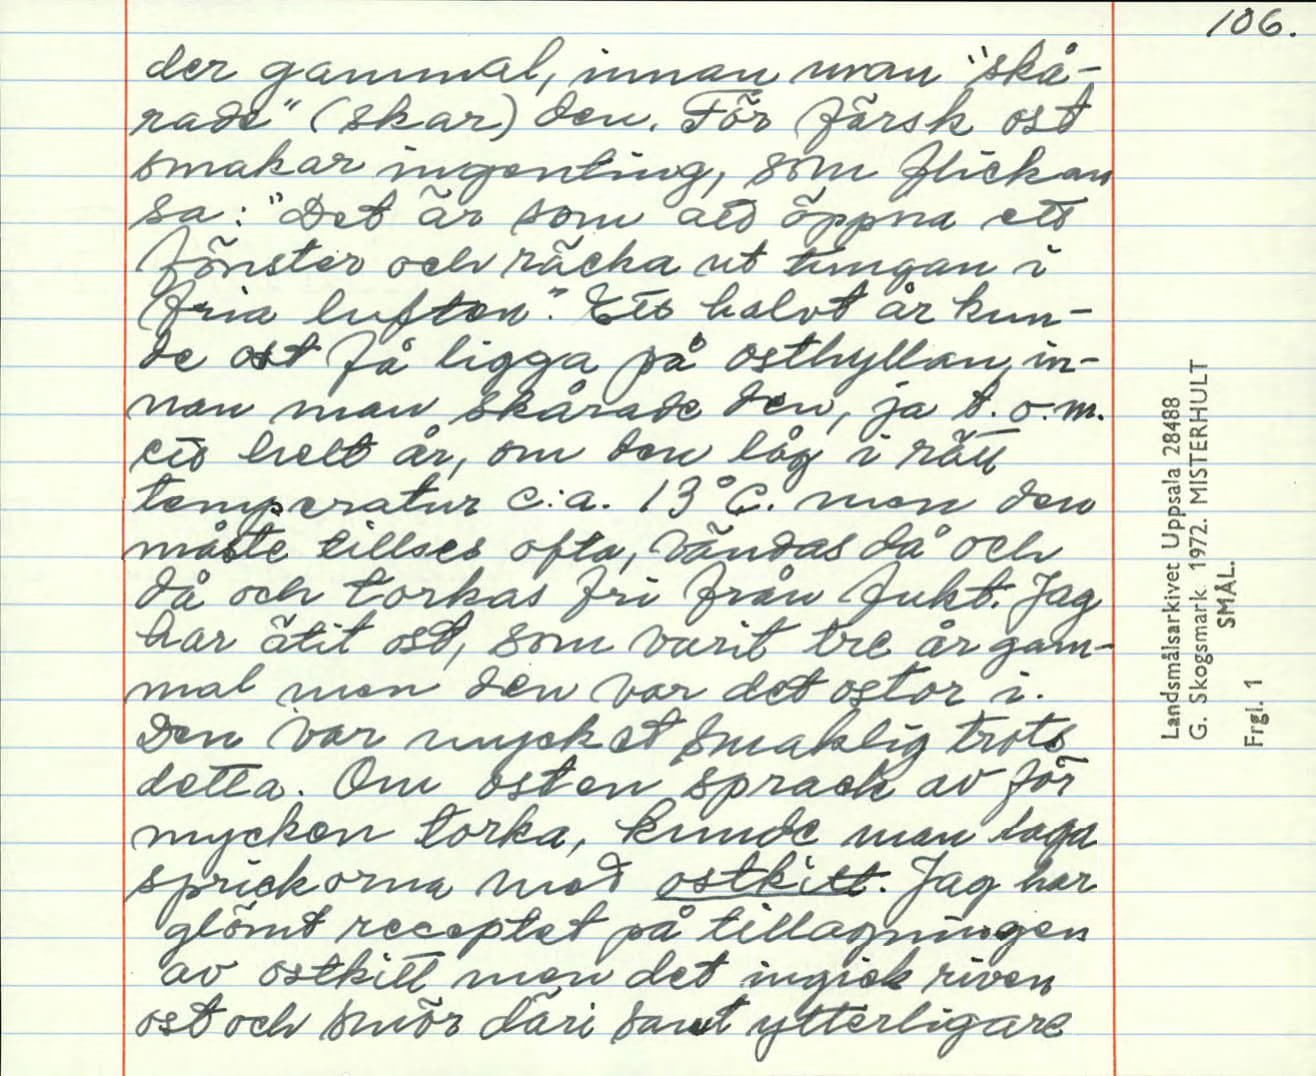 106.
der gammal, innan man "skå-
rade" (skar) den. För färsk ost
smakar ingenting, som flickan
sa: "Det är som att öppna ett
fönster och räcka ut tungan i
fria luften". Ett halvt år kun-
de ost få ligga på osthyllan in-
nan man skårade den, ja t. o. m.
ett helt år, om den låg i rätt
temperatur c:a. 13°C. men den
måste tillses ofta, vändas då och
då och torkas fri från fukt. Jag
har ätit ost, som varit tre år gam-
mal men den var det ostor i.
Den var mycket smaklig trots
detta. Om osten sprack av för
mycken torka, kunde man laga
sprickorna med ostkitt. Jag har
glömt receptet på tillagningen
av ostkitt men det ingick riven
ost och smör däri samt ytterligare
Landsmålsarkivet Uppsala 28488
G. Skogsmark 1972. MISTERHULT
SMÅL.
Frgl. 1